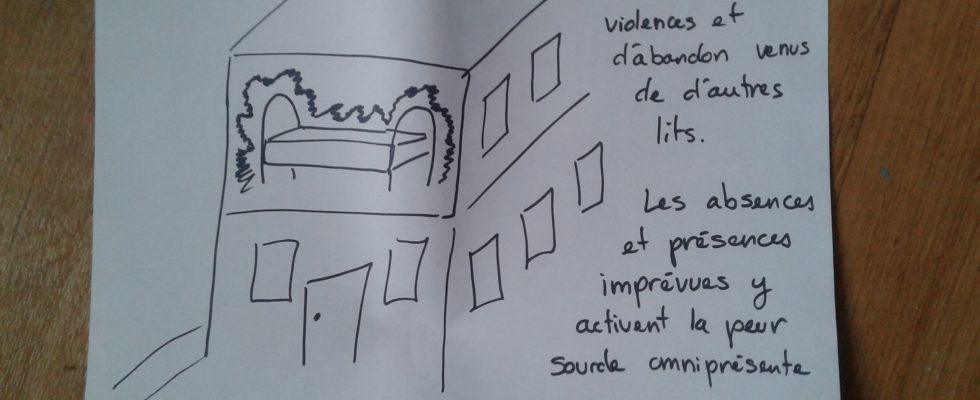 violences et
d'abandon venus
de d'autres
lits.
Les absences
et présences
imprévues y
activent la peur
sourde omniprésente